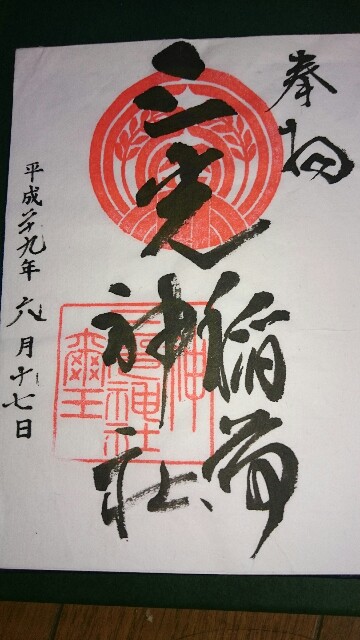 奉拝
三光
稲荷
神社
平成二十九年六月十七日